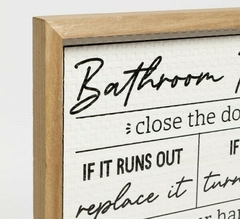 Bathroom
close the do
IF IT RUNS OUT
IF
replace it
turn
ur ha